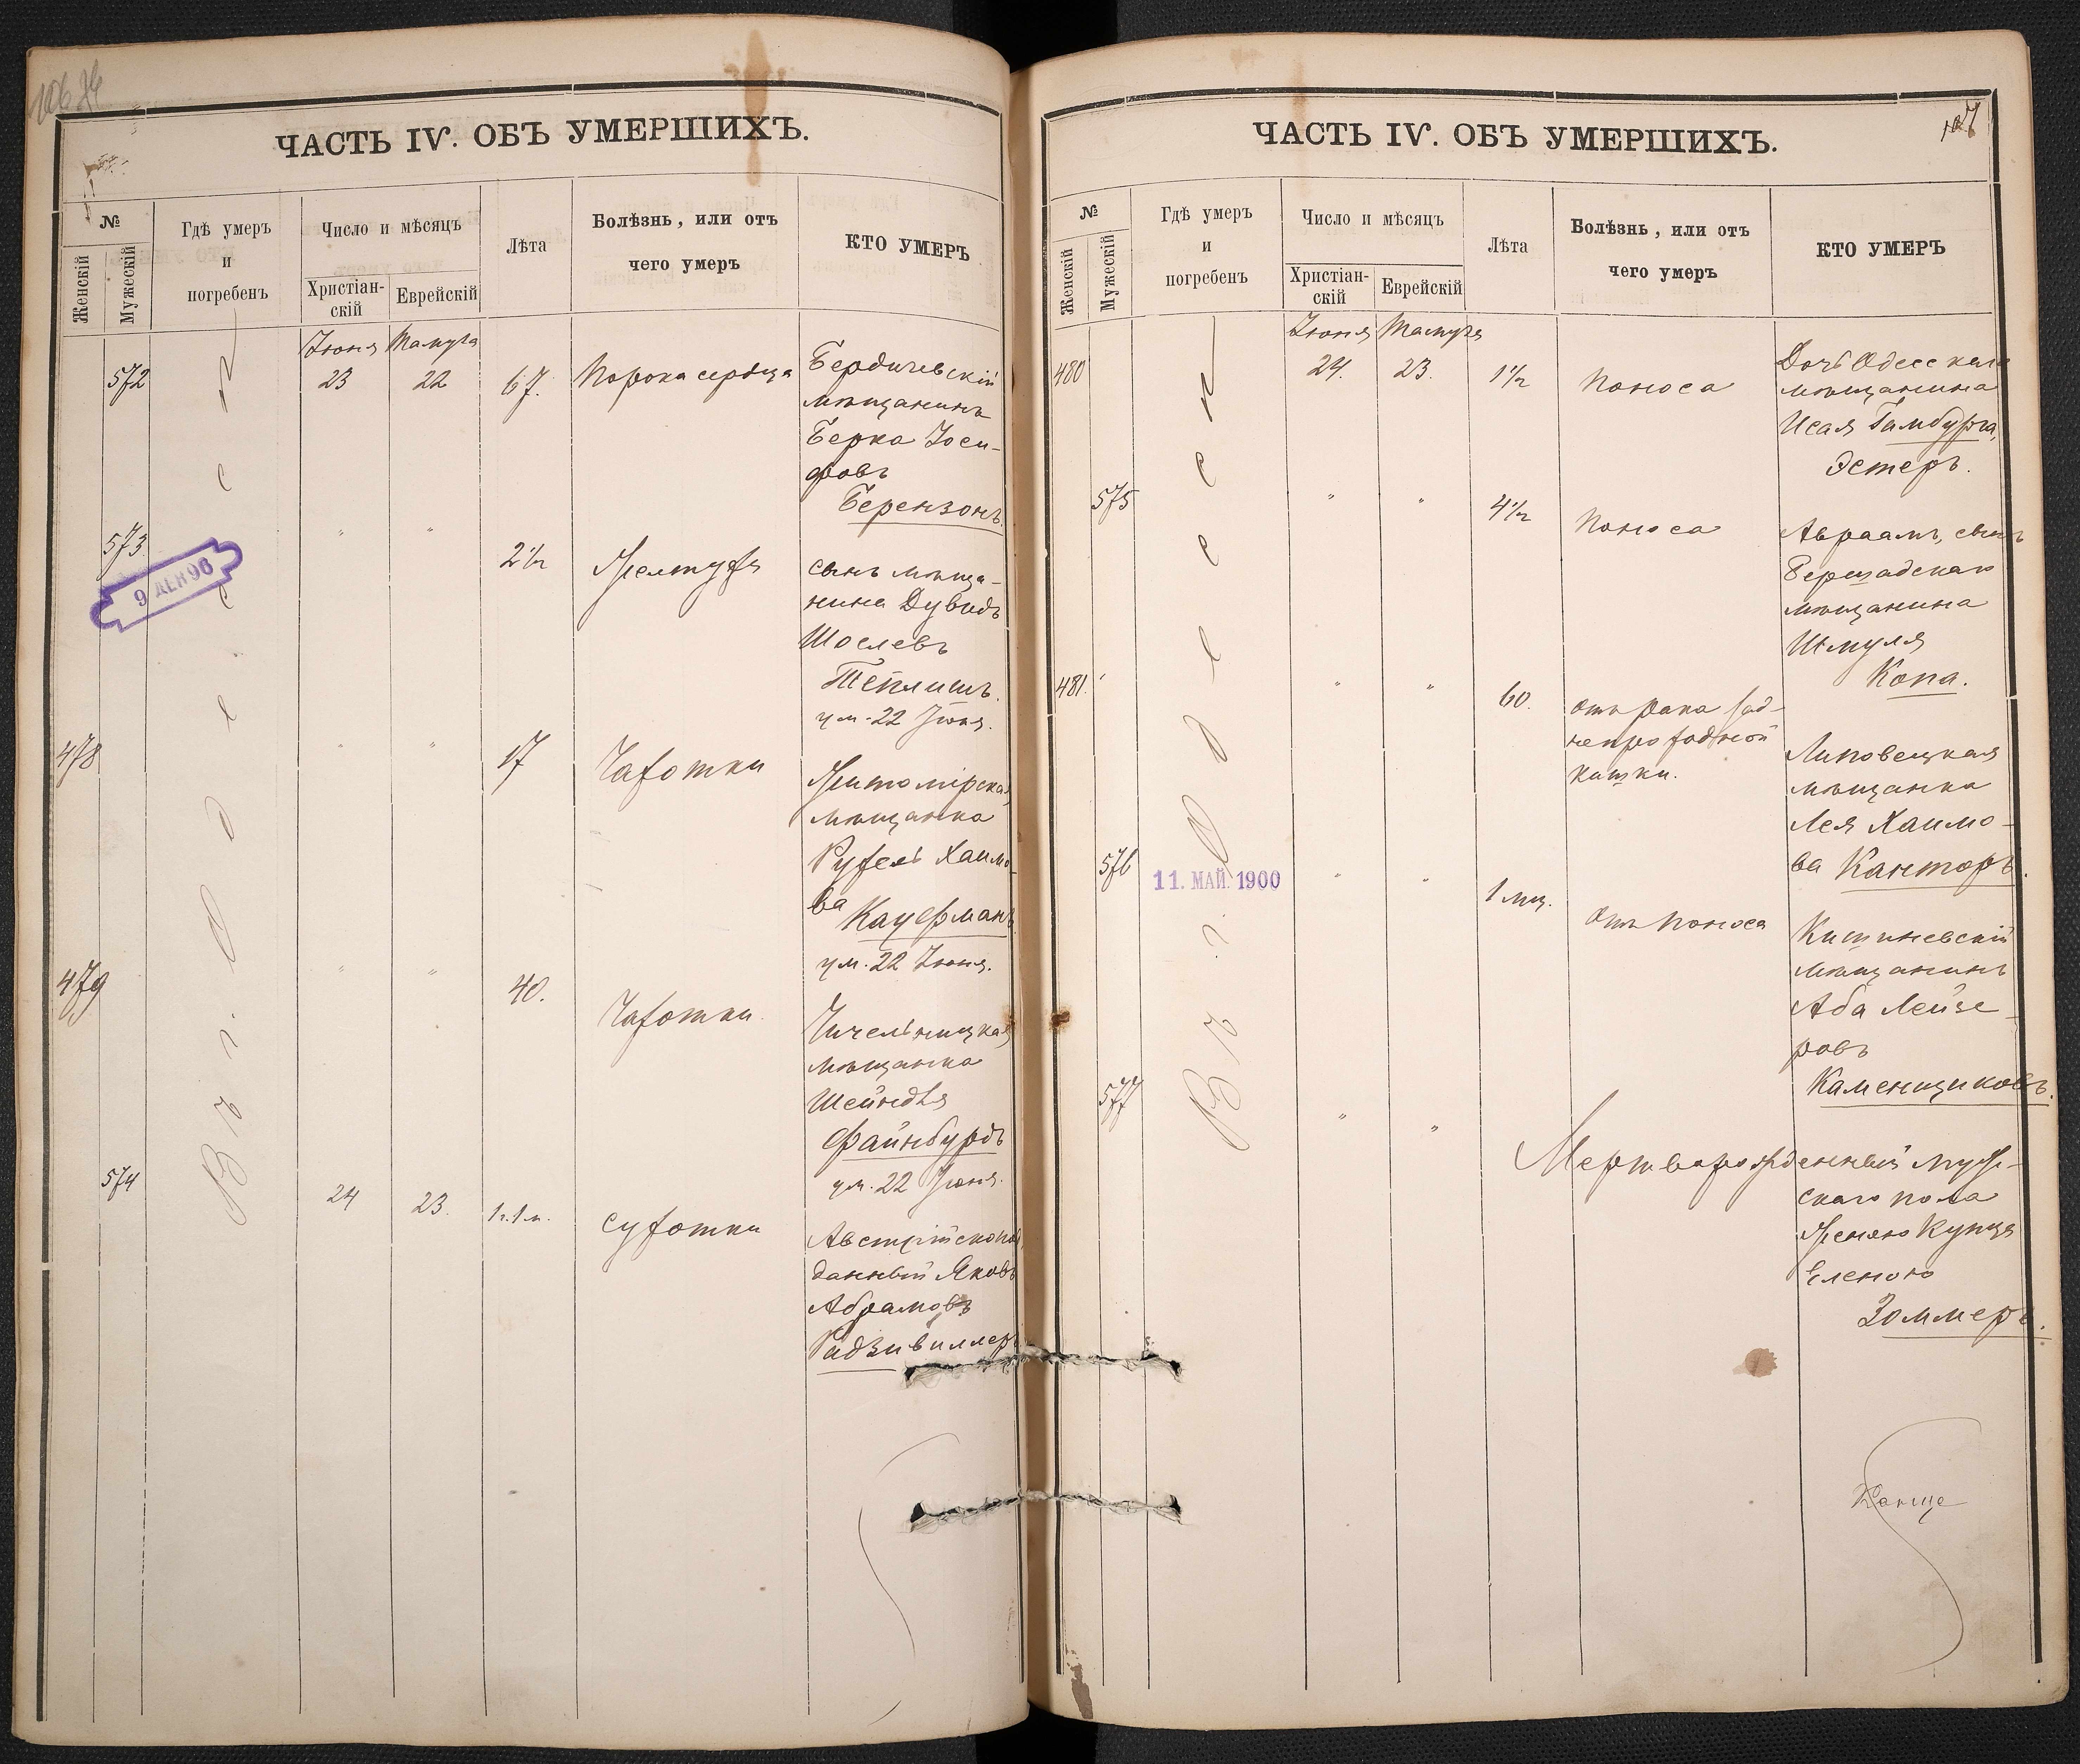 106
ЧАСТЬ IV. ОБЪ УМЕРШИХЪ.
№
Женскій
Мужескій
Гдѣ умеръ
и
погребенъ
Число и мѣсяцъ
Христіан-
скій
Еврейскій
Лѣта
Болѣзнь, или отъ
чего умеръ
КТО УМЕРЪ
Въ г. Одессѣ
Іюня Тамуза
572 23 22 67. Порока сердца
Бердичевскій
мѣщанинъ
Берка Іоси-
фовъ
Берензонъ.
573 " " 2½ Желтухи
сынъ мѣща-
нина Дувидъ
Шослевъ
Теплишъ.
ум. 22 Іюня.
9 ДЕК 96
478 " " 17 Чахотки
Житомірская
мѣщанка
Рухель Хаимо-
ва Кауфманъ.
ум. 22 Іюня.
479 " " 40. Чахотки
Чичельницкая
мѣщанка
Шейндля
Файнбурдъ
ум. 22 Іюня.
574 24 23. 1г.1м. сухотки
Австрійскоп
данный Яковъ
Абрамовъ
Радзивиллеръ
107
ЧАСТЬ IV. ОБЪ УМЕРШИХЪ.
№
Женскій
Мужескій
Гдѣ умеръ
и
погребенъ
Число и мѣсяцъ
Христіан-
скій
Еврейскій
Лѣта
Болѣзнь, или отъ
чего умеръ
КТО УМЕРЪ
Въ г. Одессѣ
Іюня Тамуза
480 24. 23. 1½ Поноса
Дочь Одесскаго
мѣщанина
Исая Гамбурга,
Эстеръ.
575 " " 4½ Поноса
Авраамъ, сынъ
Бершадскаго
мѣщанина
Шмуля
Копа.
481. " " 60. отъ рака зад-
непроходной
кишки.
Липовецкая
мѣщанка
Лея Хаимо-
ва Канторъ.
576 " " 1 мц. отъ поноса
11. МАЙ. 1900
Кишиневскій
мѣщанинъ
Аба Лейзе-
ровъ
Каменщиковъ.
577 " "
Мертворожденный муж-
скаго пола
женою Купца
Еленою
Зоммеръ.